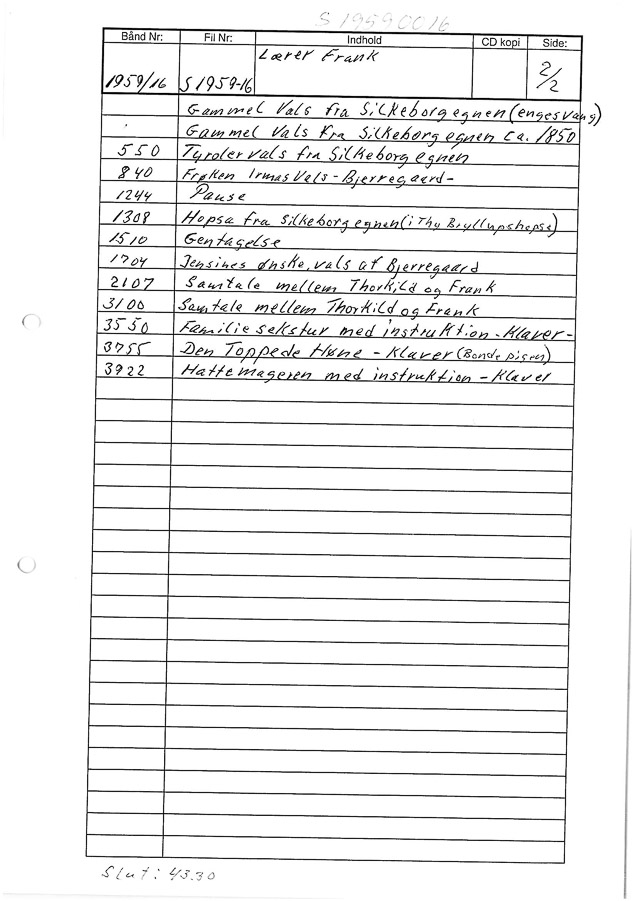 S 19590016
Bånd Nr: Fil Nr: Indhold CD kopi Side:
1959/16 S 1959-16 Lærer Frank 2/2
Gammel Vals fra Silkeborgegnen (engesvang)
Gammel Vals fra Silkeborgegnen ca. 1850
550 Tyrolervals fra Silkeborgegnen
840 Frøken Irmas Vals - Bjerregaard -
1244 Pause
1308 Hopsa fra Silkeborgegnen (i Thy Bryllupshopsa)
1510 Gentagelse
1704 Jensines Ønske, vals af Bjerregaard
2107 Samtale mellem Thorkild og Frank
3100 Samtale mellem Thorkild og Frank
3550 Familiesekstur med instruktion - Klaver -
3755 Den Toppede Høne - Klaver (Bonde pigen)
3922 Hattemageren med instruktion - Klaver
Slut: 43.30